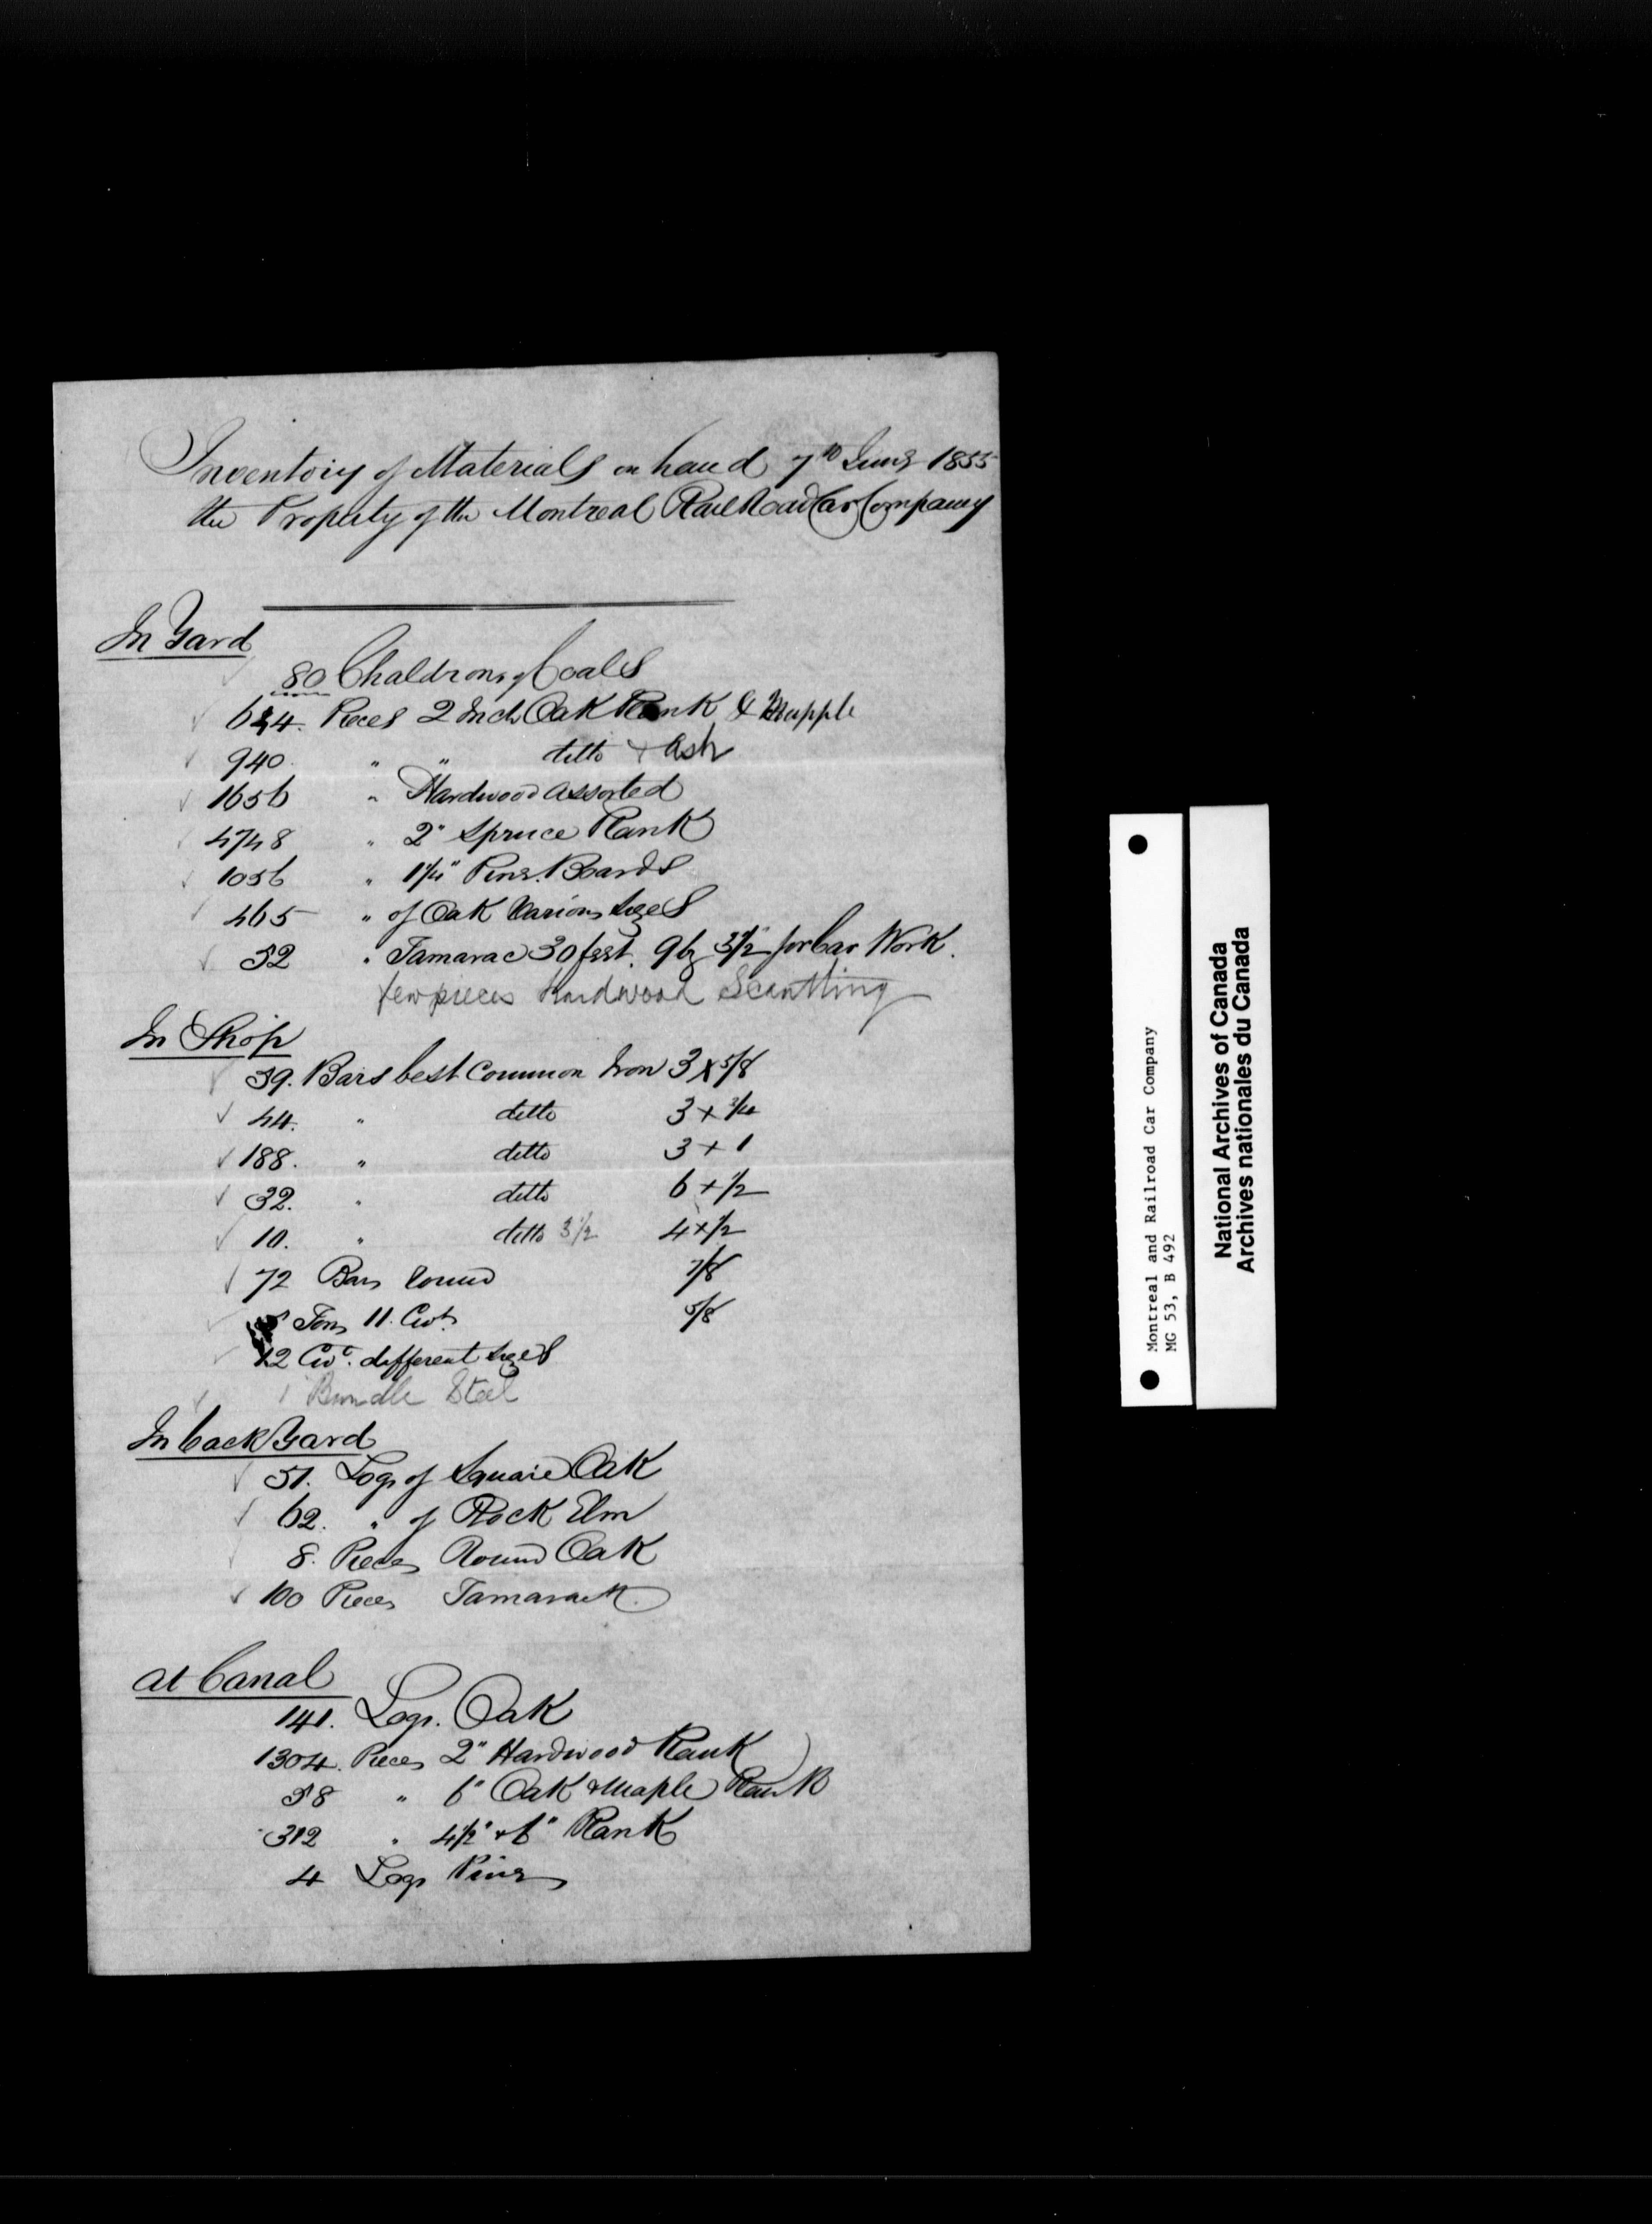 Inventory of Materials on hand 7th June 1855
the Property of the Montreal Rail Road Car Company
In Yard
80 Chaldrons of Coals
Pieces 2 Inch Oak Plank & Mapple
940 " " ditto & Ash
1656 " Hardwood Assorted
4748 " 2" Spruce Plank
1056 " 1 1/4" Pine Boards
465 " of Oak Various Sizes
52 " Tamarac 30 feet. 9 by 3 1/2" for Car Work.
few pieces Hardwood Scantling
In Shop
39. Bars best Common Iron 3 x 5/8
44. " ditto 3 x 3/4
188. " ditto 3 x 1
32. " ditto 6 x 1/2
10. " ditto 3 1/2 4 x 1/2
72 Bars round 7/8
Tons 11. Cwt. 5/8
12 Cwt. different sizes
1 Bundle Steel
In back Yard
51. Logs of Square Oak
62. " of Rock Elm
8. Pieces Round Oak
100 Pieces Tamarack.
At Canal
141. Logs. Oak
1304. Pieces 2" Hardwood Plank
58 " 6" Oak & Maple Plank
312 " 4 1/2" & 6" Plank
4 Logs Pine
Montreal and Railroad Car Company
MG 53, B 492
National Archives of Canada
Archives nationales du Canada